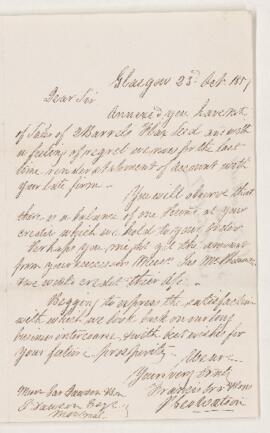 Glasgow 23d Oct. 185
Dear Sir
Annexed you have
of Sales of Barrels Flax Seed and with
a feeling of regret we now for the last
time render a statement of account with
your late firm.
You will observe that
there is a balance of at your
credit which we hold to your order
Perhaps you might get the amount
from your successors Messrs
& we would credit their a/c.
Begging to express the satisfaction
with which we look back on our long
business intercourse & with best wishes for
your future prosperity. We are
Your very truly
Francis
Messrs Jas Dawson & Son
Dawson Esqr.
Montreal